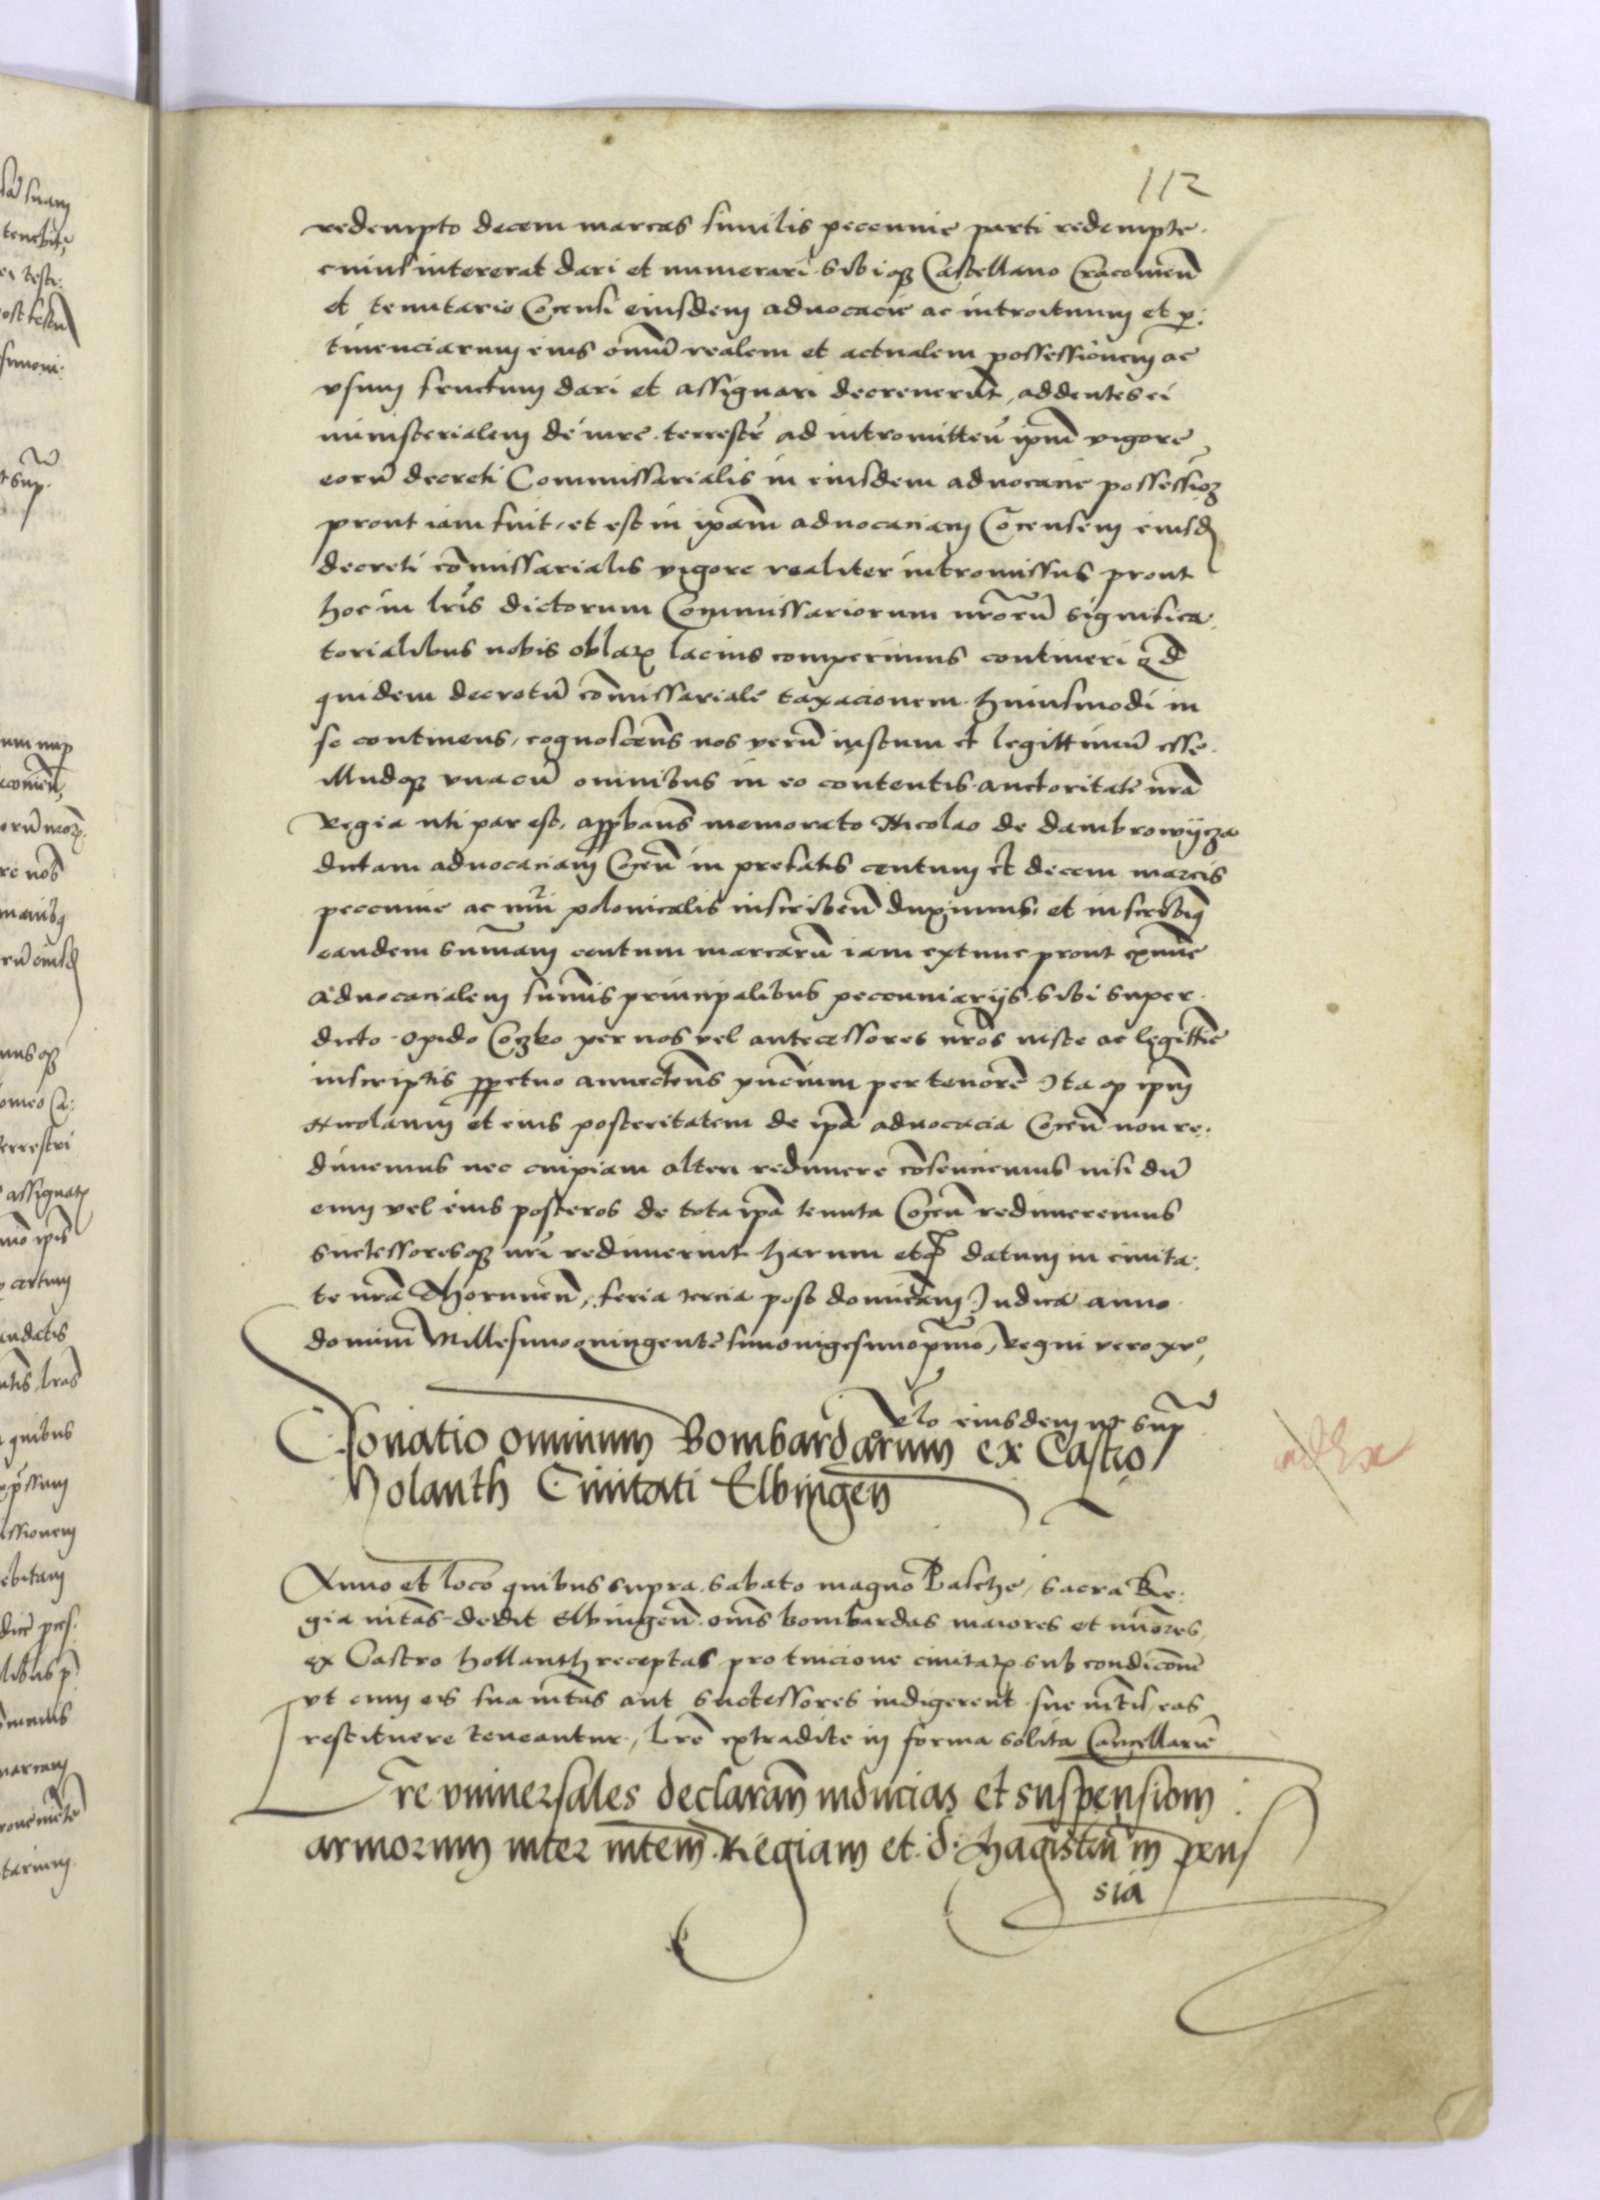 112
redempto decem marcas similis peccunie parti redempte
cuius intererat dari et numerari sibiqz Castellano Cracovien̄
et tenutario Coczensi eiusdem advocacie ac introituum et per:
tinenciarum eius omniū realem et actualem possessionem ac
vsum fructum dari et assignari decreverūt, addentes ei
ministerialem de iure terrestr̄ ad intromitten̄ ip̄m vigore
eorū decreti Commissarialis in eiusdem advocacie possessioꝫ
prout iam fuit, et est in ip̄am advocaciam Coczensem eiusd
decreti cōmissarialis vigore realiter intromissus prout
hoc in lr̄is dictorum Commissariorum nr̄orū significa:
torialibus nobis oblatꝫ lacius comperimus contineri qd
quidem decretū cōmissariale taxacionem huiusmodi in
se continens, cognoscen̄s nos verū iustum et legittimū esse
illudqz vnacū omnibus in eo contentis auctoritate nr̄a
Regia uti par est, app̄ban̄s memorato Nicolao de dambrowycza
dictam advocaciam Coczen̄ in prefatis centum et decem marcis
peccunie ac nu̅i polonicalis inscriben̄ duximus, et inscribimꝫ
eandem sum̄am centum marcarū iam extunc prout exnūc
advocacialem sum̄is principalibus peccuniarijs sibi super
dicto opido Coczko per nos vel antecessores nr̄os iuste ac legittīe
inscriptis ꝓpetuo annecten̄s p̄ncium per tenorē Ita qꝫ ip̄m
Nicolaum et eius posteritatem de ip̄a advocacia Coczen̄ non re:
dimemus nec cuipiam alteri redimere cōsenciemus nisi dū
eum vel eius posteros de tota ip̄a tenuta Coczen̄ redimeremus
successoresqz nr̄i redimerint harum etc̄ datum in civita:
te nr̄a Thorunien̄, feria tercia post dominicam Iudica anno
domini Millesimoquingentesimovigesimoprimo, Regni vero xvº
Rlo eiusdem ut supra
Donatio omnium Bombardarum ex Castro
Holanth Civitati Elbingen̄
Anno et loco quibus supra sabato magno Pasche, sacra Re:
gia m̄tas dedit Elbingen̄ om̄s bombardas maiores et minores
ex Castro hollanth receptas pro tuicione civitatꝫ sub condicōne
vt cum eis sua m̄tas aut successores indigerent sue m̄ti eas
restituere teneantur, Lr̄e extradite in forma solita Cancellarie
Lr̄e vniversales declaran̄ inducias et suspensionem
armorum inter m̄tem Regiam et d. Magistrū in prus
sia